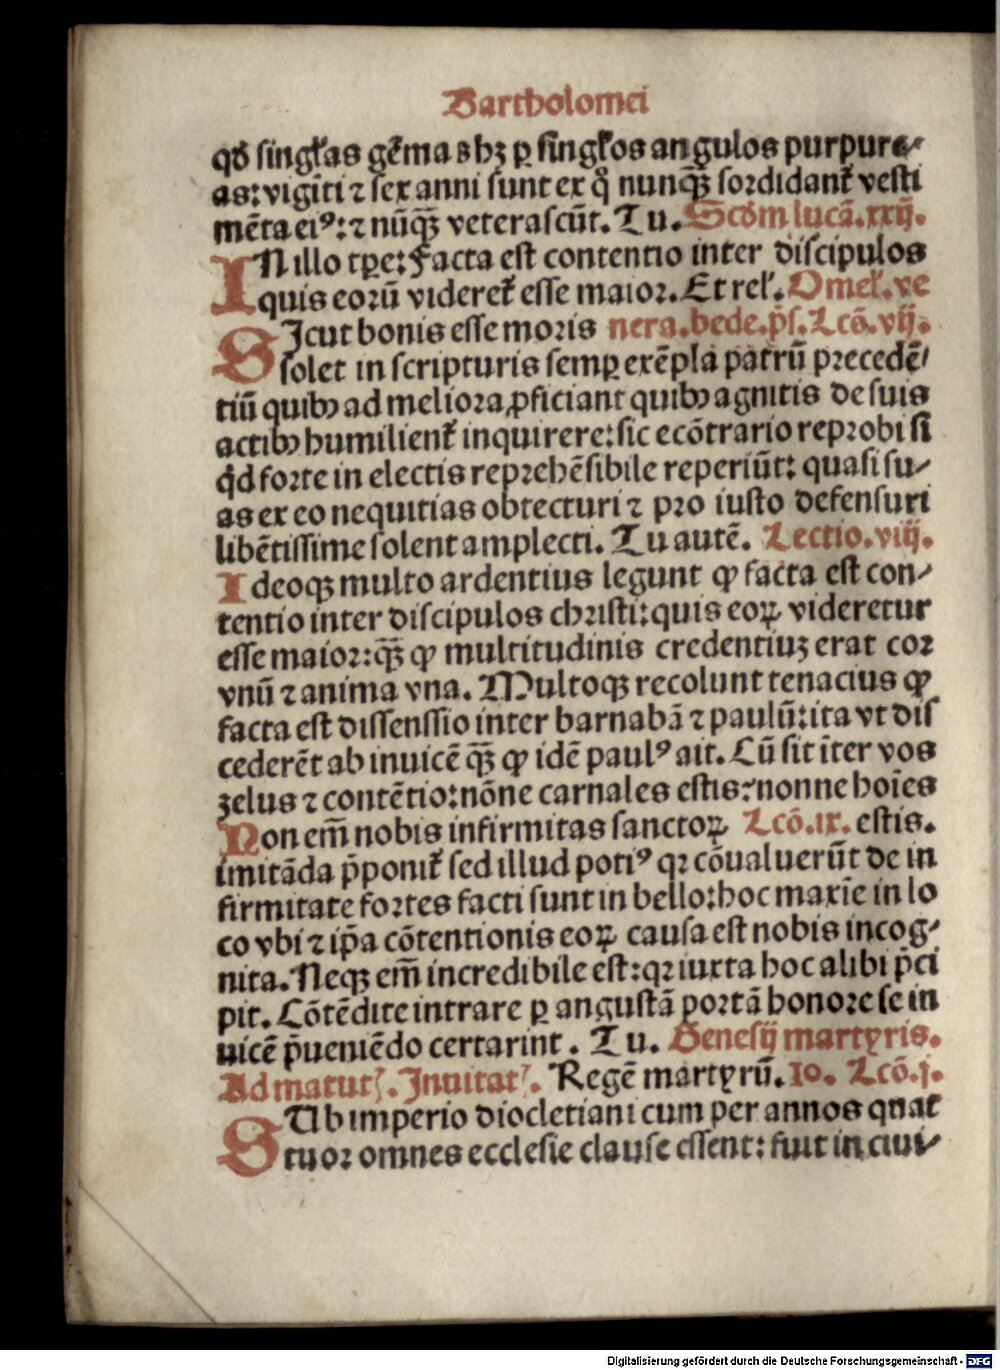 Bartholomei
qd̄ singl̄as gēmas hꝫ ꝑ singl̄os angulos purpure⸗
as: viginti ⁊ sex anni sunt ex qͦ nunqꝫ̄ sordidant̄ vesti
mēta eiꝰ: ⁊ nūqꝫ̄ veterascūt. Tu. Scd̄m lucā. xxij.
IN illo tꝑe: Facta est contentio inter discipulos
quis eorū videret̄ esse maior. Et rel̄. Omel̄. ve
SIcut bonis esse moris nera. bede. p̄s. Lcō. vij.
solet in scripturis semꝑ exēpla patrū precedē⸗
tiū quibꝰ ad meliora ꝓficiant quibꝰ agnitis de suis
actibꝰ humilient̄ inquirere: sic ecōtrario reprobi si
qd̄ forte in electis reprehēsibile reperiūt: quasi su⸗
as ex eo nequitias obtecturi ⁊ pro iusto defensuri
libētissime solent amplecti. Tu autē. Lectio. viij.
Ideoqꝫ multo ardentius legunt ꝙ facta est con⸗
tentio inter discipulos christi: quis eoꝝ videretur
esse maior: qꝫ̄ ꝙ multitudinis credentiuꝫ erat cor
vnū ⁊ anima vna. Multoqꝫ recolunt tenacius ꝙ
facta est dissenssio inter barnabā ⁊ paulū: ita vt dis
cederēt ab inuicē qꝫ̄ ꝙ idē paulꝰ ait. Cū sit īter vos
zelus ⁊ contētio: nōne carnales estis: nonne hoīes
Non em̄ nobis infirmitas sanctoꝝ Lcō. ix. estis.
imitāda p̄ponit̄ sed illud potiꝰ qꝛ cōualuerūt de in
firmitate fortes facti sunt in bello: hoc maxīe in lo
co vbi ⁊ ip̄a cōtentionis eoꝝ causa est nobis incog⸗
nita. Neqꝫ em̄ incredibile est: qꝛ iuxta hoc alibi p̄ci
pit. Cōtēdite intrare ꝑ angustā portā honore se in
uicē p̄ueniēdo certarint. Tu. Genesij martyris.
Ad matut̄. Inuitat̄. Regē martyrū. 10. Lcō. j.
SUb imperio diocletiani cum per annos quat
tuor omnes ecclesie clause essent: fuit in ciui⸗
Digitalisierung gefördert durch die Deutsche Forschungsgemeinschaft - DFG